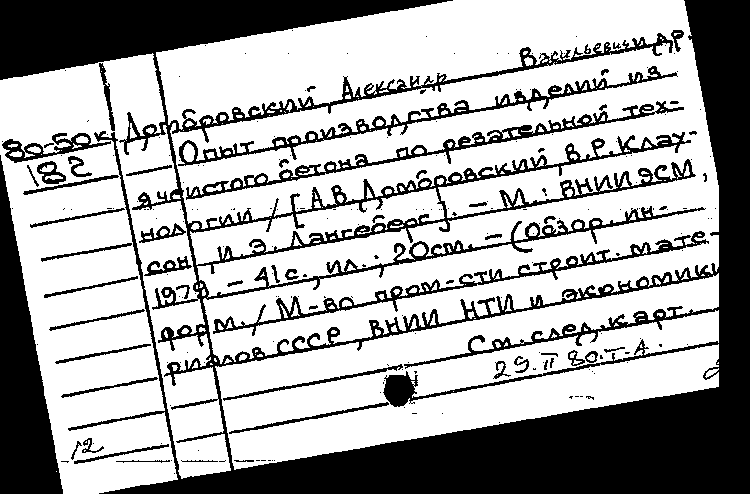 80-50к Домбровский, Александр Васильевич и др.
182 Опыт производства изделий из
ячеистого бетона по резательной тех-
нологии / [А.В. Домбровский, В.Р. Клау-
сон, И.Э. Лангеберг]. – М.: ВНИИЭСМ,
1979. – 41 с., ил.; 20 см. – (Обзор. ин-
форм. / М-во пром-сти строит. мате-
риалов СССР, ВНИИ НТИ и экономики
См. след. карт.
29.II 80. Т-А.
12